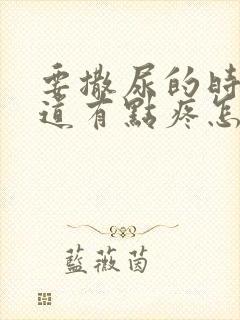 要撒尿的時
道有點疼怎
藍薇茵